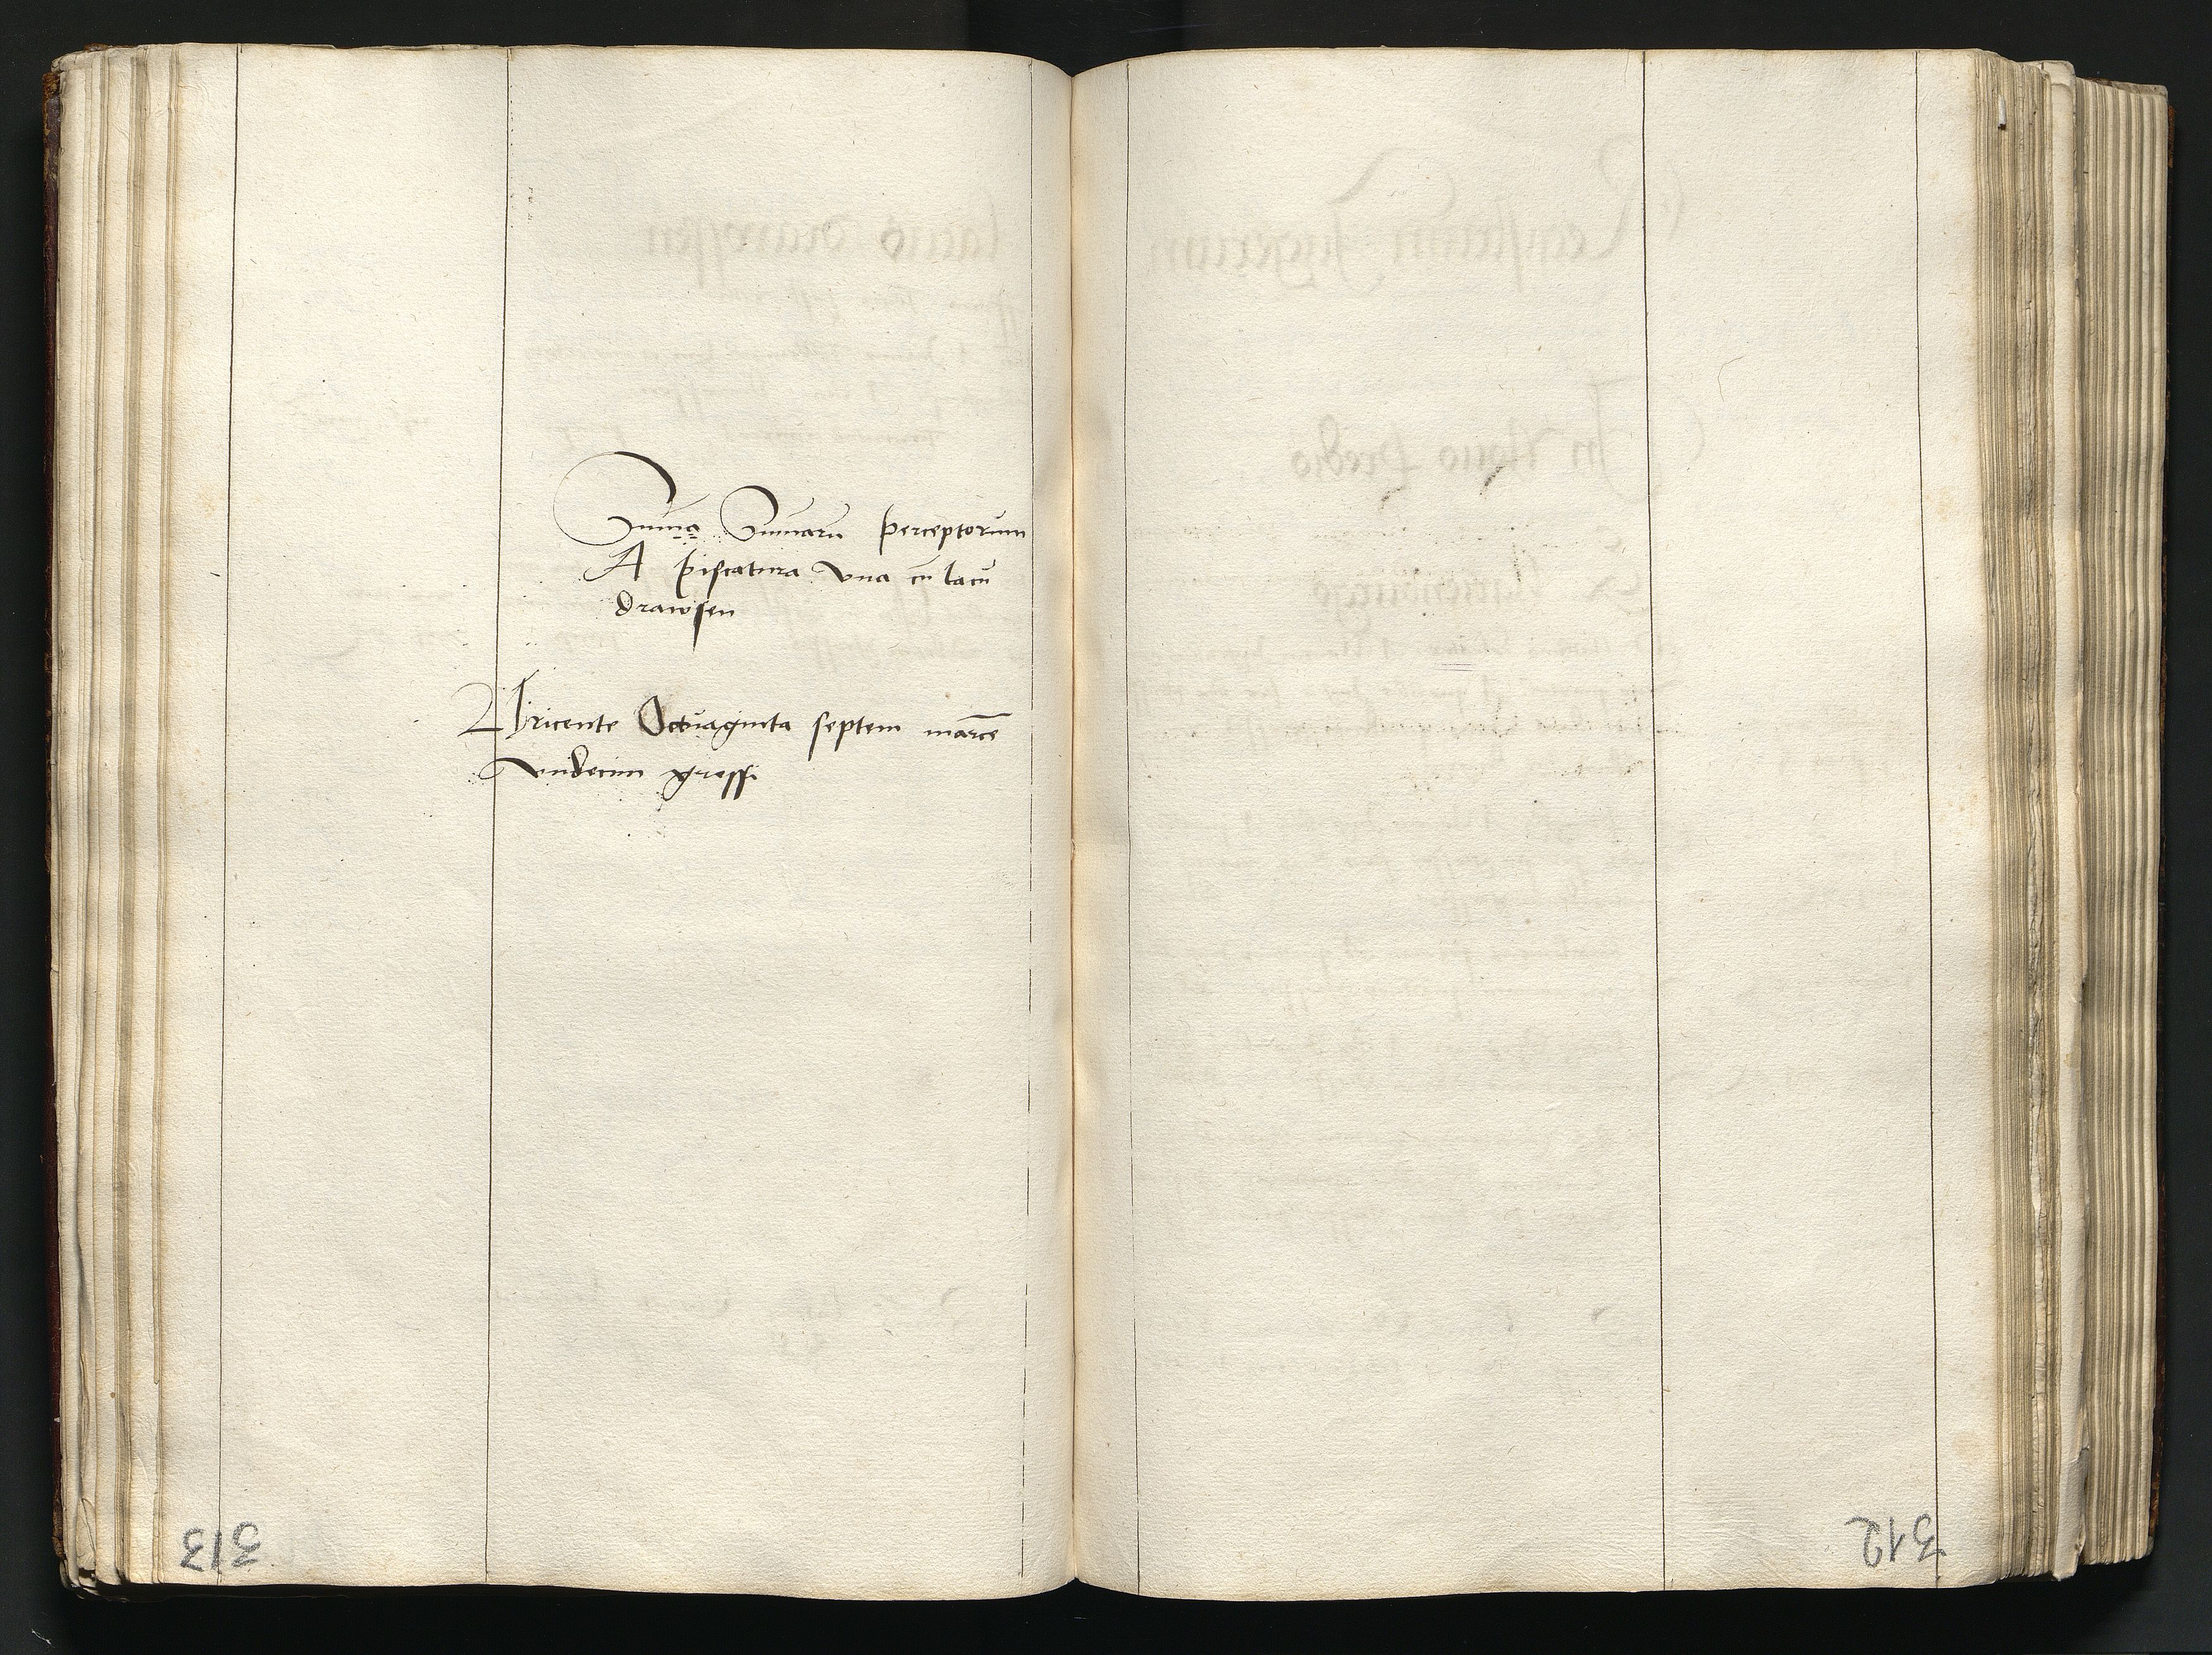 Suma Sumaru perceptorum
A piscatura vna cu lacu
drawsen
Tricente Octuaginta septem marce
vndecim grossi
313
312